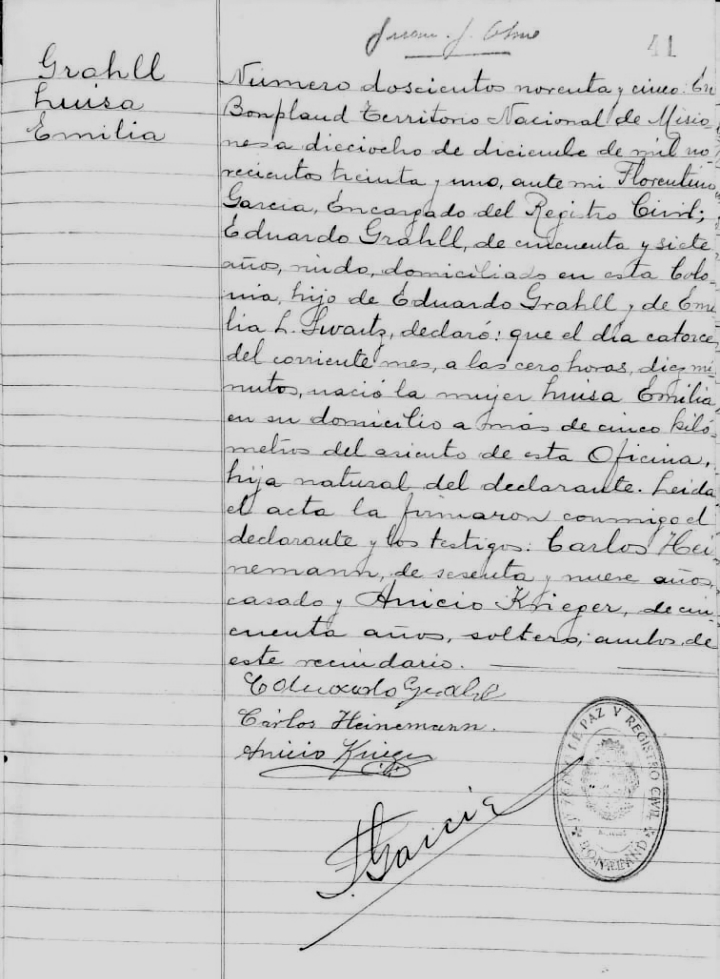 41
Grahll
Luisa
Emilia
Número doscientos noventa y cinco: En
Bonpland Territorio Nacional de Misio-
nes a dieciocho de diciembre de mil no-
vecientos treinta y uno, ante mi Florentino
Garcia, Encargado del Registro Civil;
Eduardo Grahll, de cincuenta y siete
años, viudo, domiciliado en esta Colo-
nia, hijo de Eduardo Grahll y de Emi
lia L. Swartz, declaró: que el día catorce
del corriente mes, a las cero horas, diez mi-
nutos, nació la mujer Luisa Emilia
en su domicilio a más de cinco kiló-
metros del asiento de esta Oficina,
hija natural del declarante. Leida
el acta la firmaron conmigo el
declarante y los testigos: Carlos Hei
nemann, de sesenta y nueve años,
casado y Anicio Krieger, de cin-
cuenta años, soltero, ambos de
este vecindario.
Eduardo Grahll
Carlos Heinemann.
Anicio Krieger
F. Garcia
JUZGADO DE PAZ Y REGISTRO CIVIL
BONPLAND